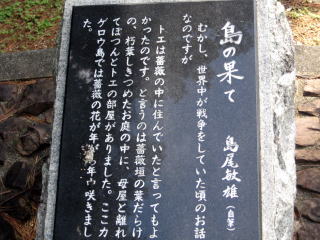 島の果て
島尾敏雄（自筆）
むかし、世界中が戦争をしていた頃のお話
なのですが
トエは薔薇の中に住んでいたと言ってもよ
かったのです。と言うのは薔薇垣の葉だらけ
の、朽葉しきつめたお庭の中に、母屋と離れ
てぽつんとトエの部屋がありました。ここカ
ゲロウ島では薔薇の花が年が年中咲きまし
た。